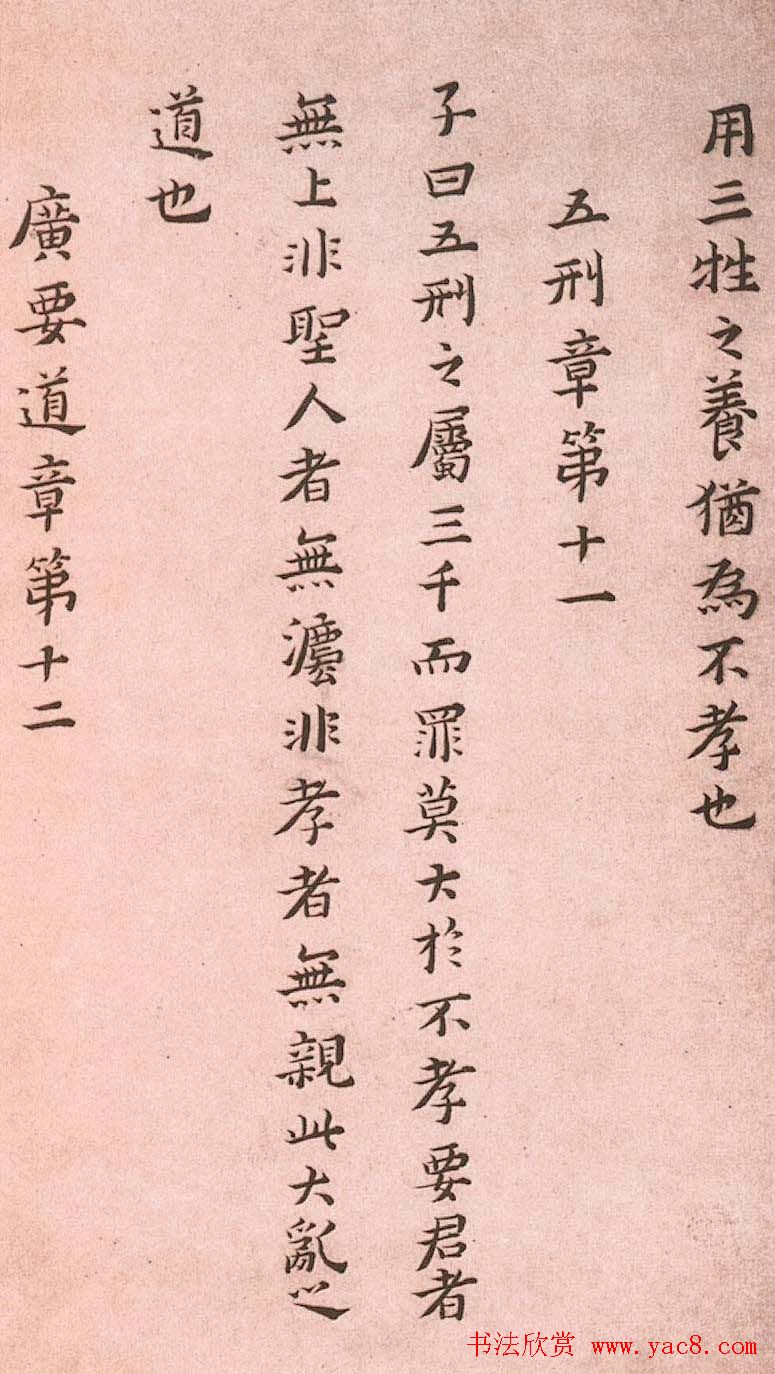 用三牲之養猶為不孝也
五刑章第十一
子曰五刑之屬三千而罪莫大於不孝要君者
無上非聖人者無灋非孝者無親此大亂之
道也
廣要道章第十二
书法欣赏 www.yac8.com